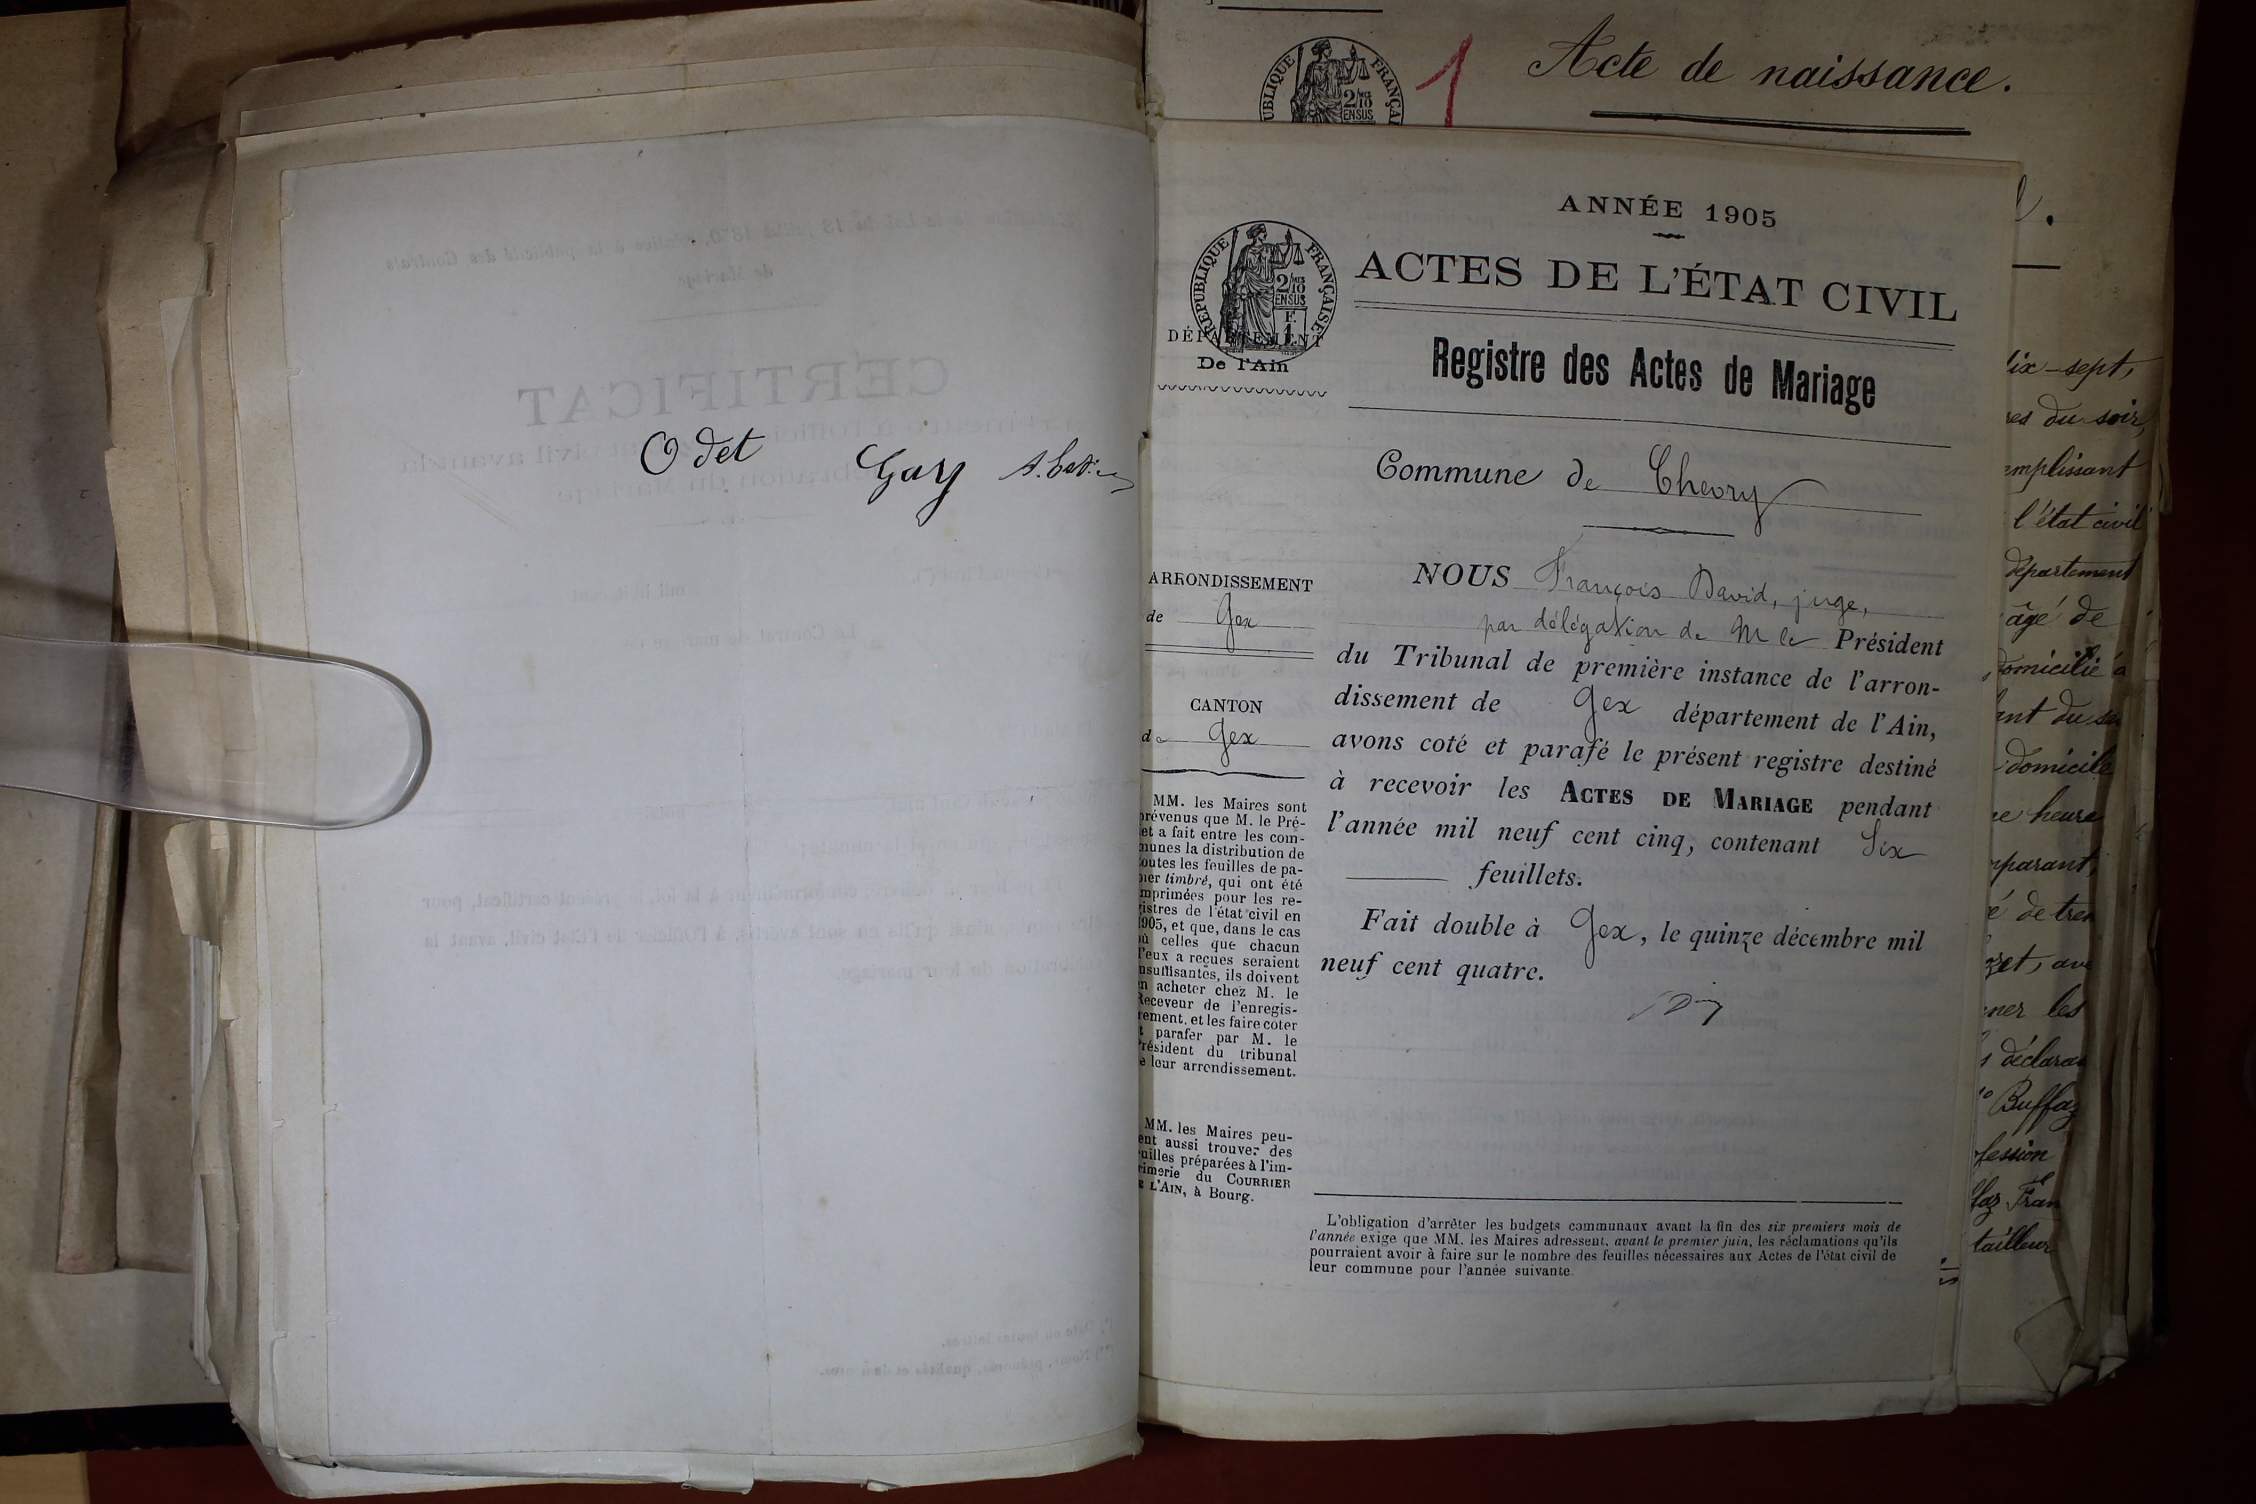 Odet Gay
Acte de naissance.
1
ANNÉE 1905
RÉPUBLIQUE FRANÇAISE
ACTES DE L'ÉTAT CIVIL
DÉPARTEMENT
De l'Ain
Registre des Actes de Mariage
Commune de Chevry
ARRONDISSEMENT
de Gex
CANTON
de Gex
MM. les Maires sont
prévenus que M. le Pré-
et a fait entre les com-
munes la distribution de
toutes les feuilles de pa-
pier timbré, qui ont été
imprimées pour les re-
gistres de l'état civil en
1905, et que, dans le cas
où celles que chacun
d'eux a reçues seraient
insuffisantes, ils doivent
en acheter chez M. le
Receveur de l'enregis-
rement, et les faire coter
t parafer par M. le
Président du tribunal
e leur arrondissement.
MM. les Maires peu-
ent aussi trouver des
euilles préparées à l'im-
rimerie du COURRIER
E L'AIN, à Bourg.
NOUS François David, juge,
par délégation de M le Président
du Tribunal de première instance de l'arron-
dissement de Gex département de l'Ain,
avons coté et parafé le présent registre destiné
à recevoir les ACTES DE MARIAGE pendant
l'année mil neuf cent cinq, contenant Six
feuillets.
Fait double à Gex, le quinze décembre mil
neuf cent quatre.
L'obligation d'arrêter les budgets communaux avant la fin des six premiers mois de
l'année exige que MM. les Maires adressent, avant le premier juin, les réclamations qu'ils
pourraient avoir à faire sur le nombre des feuilles nécessaires aux Actes de l'état civil de
leur commune pour l'année suivante.
dix-sept,
res du soir,
emplissant
l'état civil
département
âgé de
domicilié à
domicile
ne heure
mparant,
é de tren
ner les
s déclaran
Buffaz
fession
faz Fran
tailleur